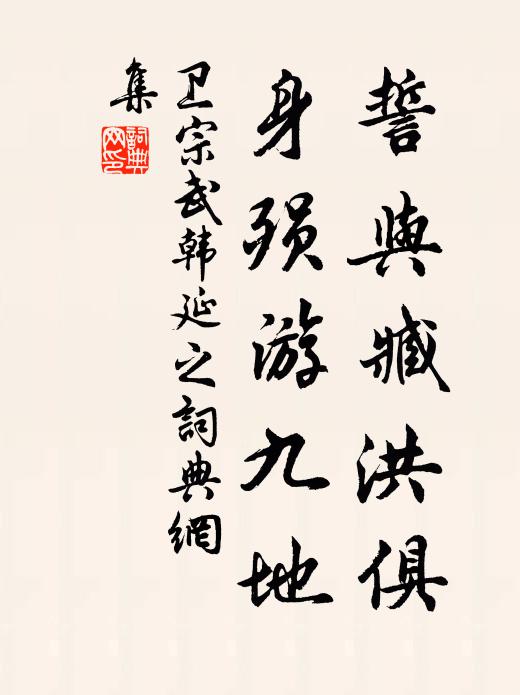 誓與臧洪俱
身殒游九地
卫宗武韩延之詞典網
集
詞典
网印